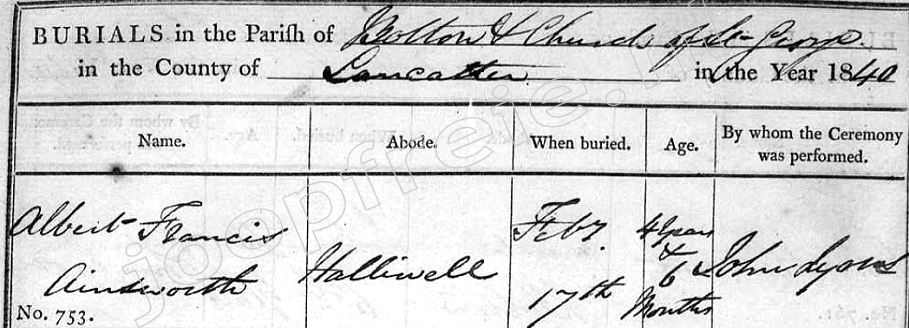 BURIALS in the Pariſh of Bolton & Church of St. George.
in the County of Lancaster in the Year 1840
Name. Abode. When buried. Age. By whom the Ceremony
was performed.
Albert Francis Feby. 4 Years
& 
Ainsworth Halliwell 6 John Lyons
17th Months
No. 753.
joopfreie.